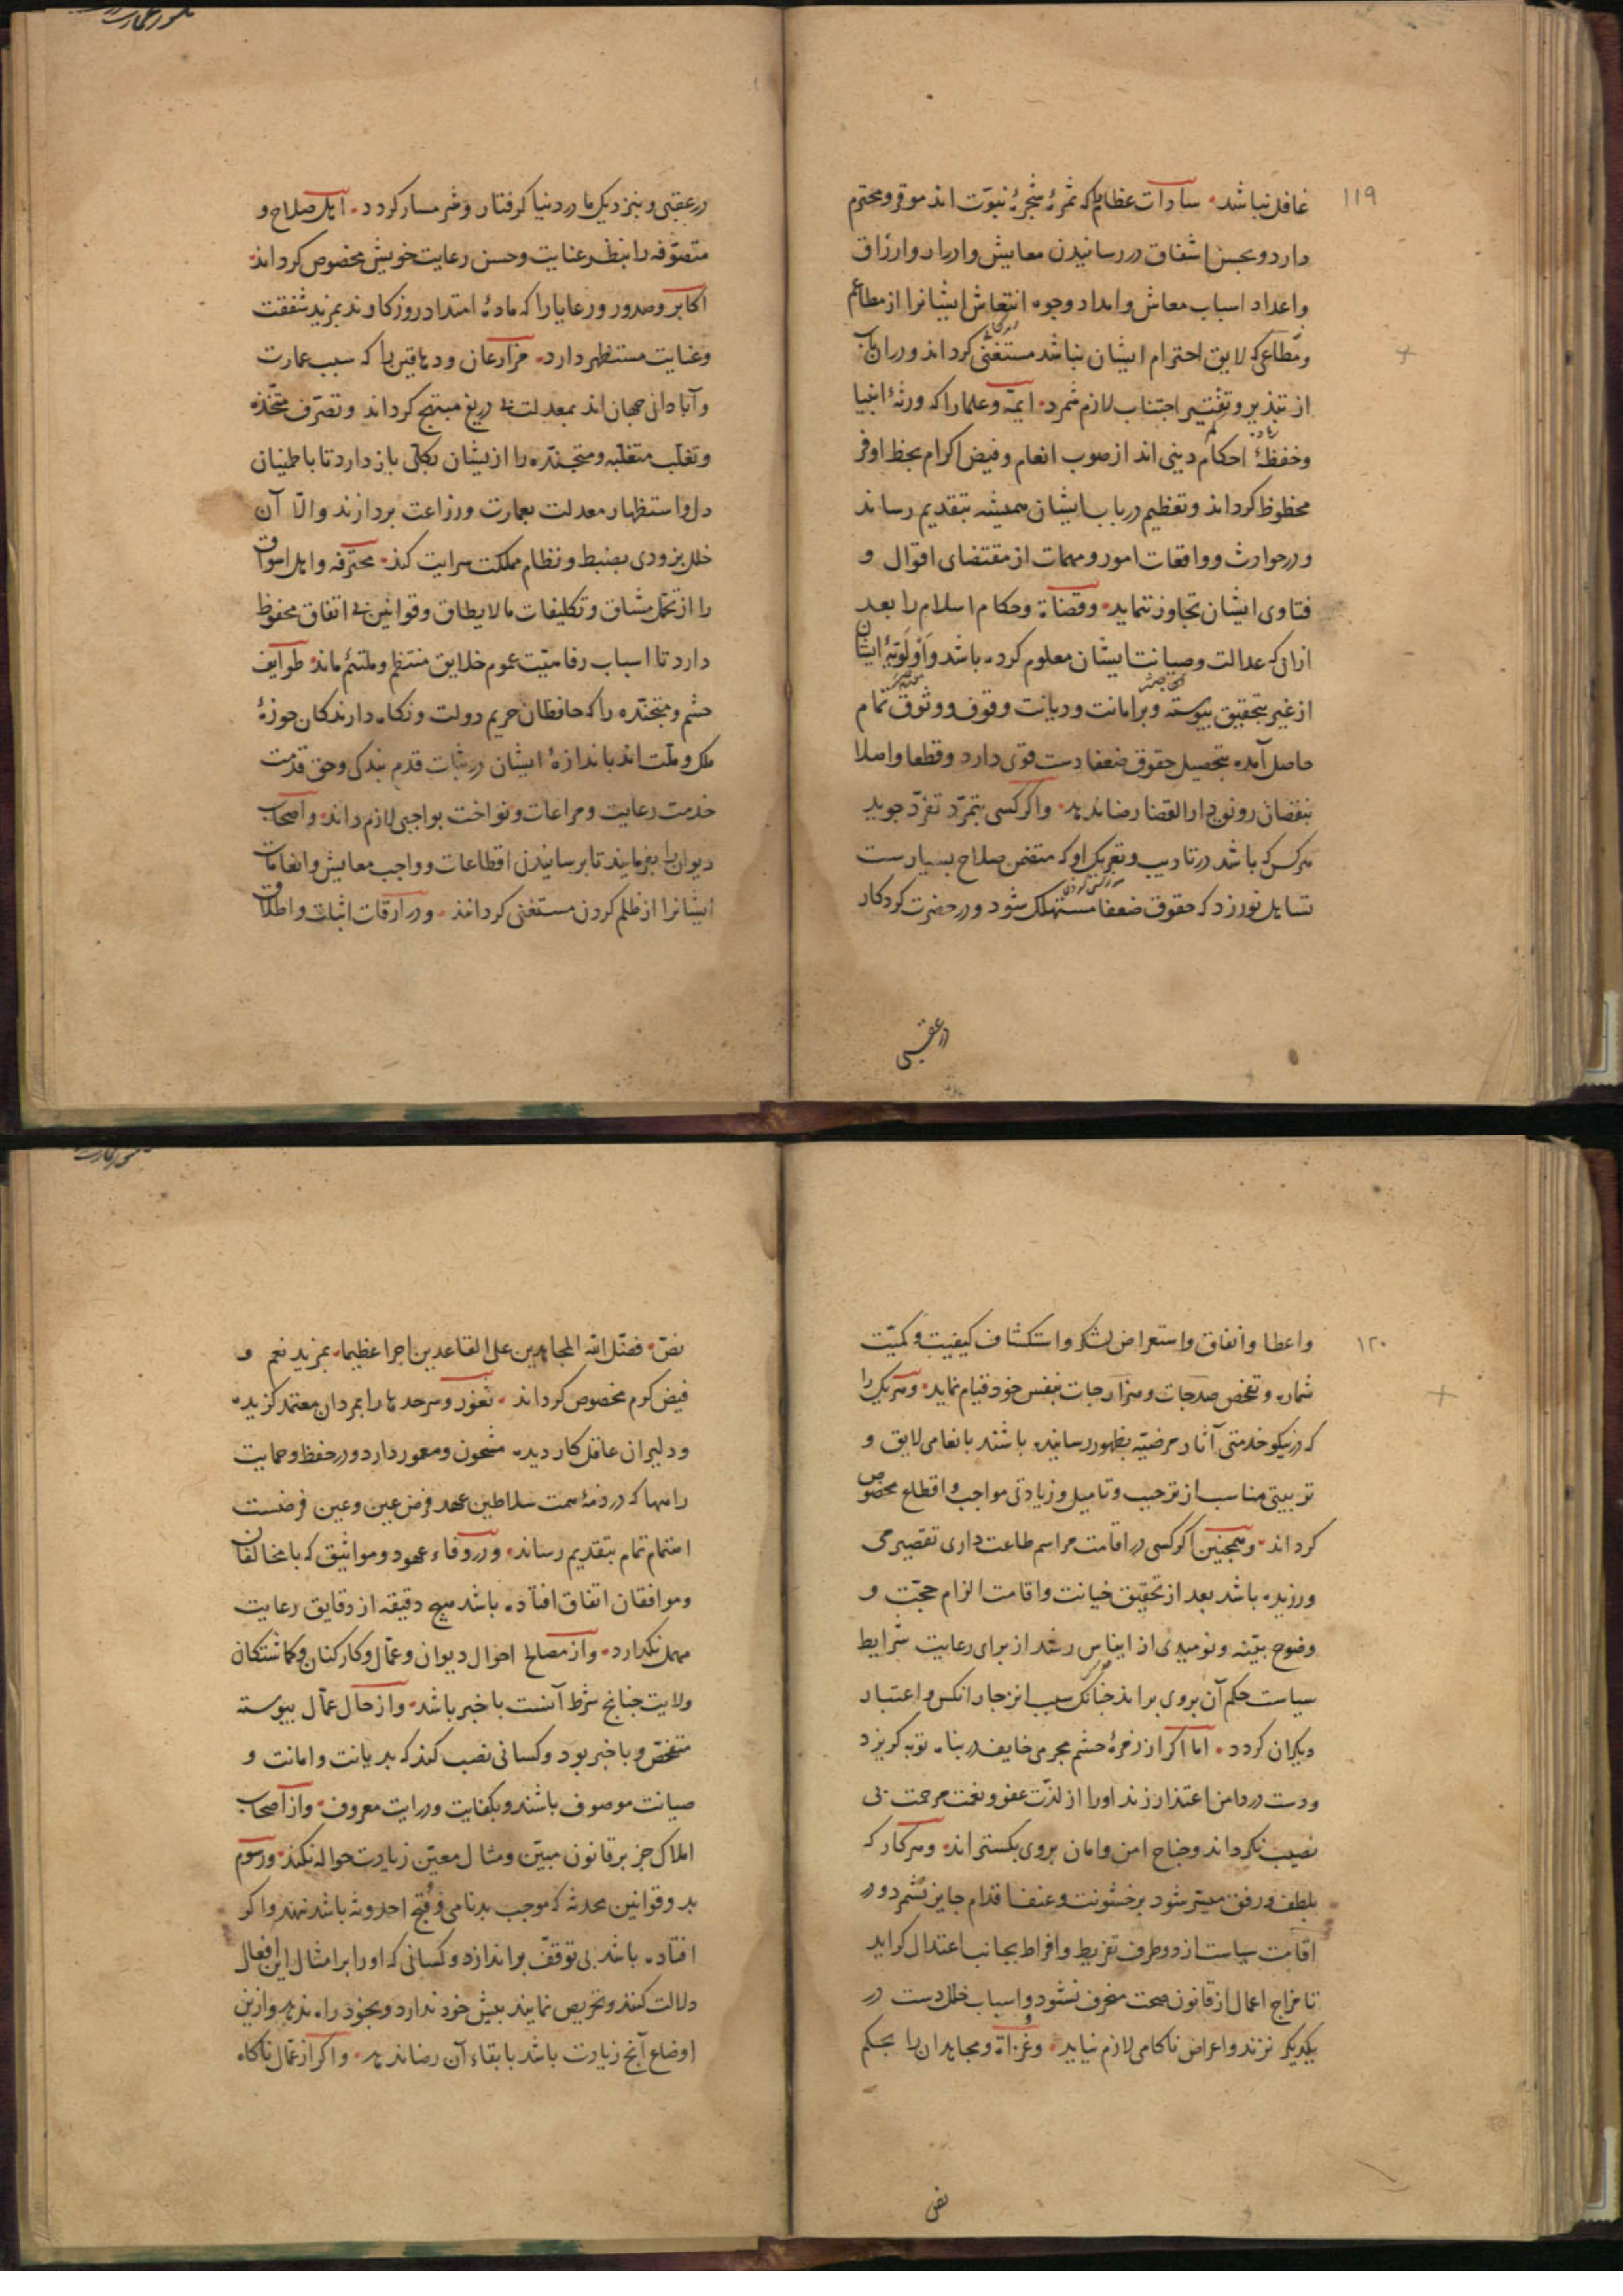 ۱۱۹
غافل نباشد سادات عظام را که ثمرهٔ شجرهٔ نبوّت اند موقر و محترم
دارد و بحسن اشفاق در رسانیدن معایش و ادرار و ارزاق
و اعداد اسباب معاش و امداد وجوه انتعاش ایشانرا از مطاعم
و مطامعی که لایق احترام ایشان نباشد مستغنی کرداند و در ان باب
از تبذیر و تقتیر اجتناب لازم شمرد ایمّه و علما را که ورثهٔ انبیا
و حفظهٔ احکام دینی اند از صوب انعام و فیض اکرام بحظ اوفر
محظوظ کرداند و تعظیم در باب ایشان همیشه بتقدیم رساند
و در حوادث و واقعات امور و مهمات از مقتضای اقوال و
فتاوی ایشان تجاوز ننماید و قضاة و حکام اسلام را بعد
ازان که عدالت و صیانت ایشان معلوم کرده باشد و اولویّة ایشان
از غیر بتحقیق پیوسته و بر امانت و دیانت وقوف و وثوق تمام
حاصل آمده بتحصیل حقوق ضعفا دست قوی دارد و قطعا و اصلا
بنقصان رونق دار القضا رضا ندهد و اکر کسی بتمرّد تفرّد جوید
هرکس که باشد در تادیب و تعریک او که متضمن صلاح بسیارست
تساهل نورزد که حقوق ضعفا مستهلک شود و در حضرت کردکار
در عقبی
در عقبی و بنزدیک ما در دنیا کرفتار و شرمسار کردد اهل صلاح و
متصوّفه را بنظر عنایت و حسن رعایت خویش مخصوص کرداند
اکابر و صدور و رعایا را که مادهٔ امتداد روزکاوند بمزید شفقت
و عنایت مستظهر دارد مزارعان و دهاقین را که سبب عمارت
و آبادانی جهان اند بمعدلت بی دریغ مبتهج کرداند و تصرّف متّخذه
و تغلّب متغلّبه و متجنّده را از یشان بکلّی باز دارد تا باطمینان
دل و استظهار معدلت بعمارت و زراعت بردازند و الّا آن
خلل بزودی بضبط و نظام مملکت سرایت کند محترفه و اهل اسواق
را از تحمّل مشاق و تکلیفات ما لا یطاق و قوانین بی اتفاق محفوظ
دارد تا اسباب رفاهیّت عموم خلایق منتظم و ملتئم ماند طوایف
حشم و متجنّده را که حافظان حریم دولت و نکاه دارندکان حوزهٔ
ملک و ملّت اند باندازهٔ ایشان در ثبات قدم بندکی و حق قدمت
خدمت رعایت و مراعات و نواخت بواجبی لازم داند و اصحاب
دیوان را بفرمایند تا برسانیدن اقطاعات و واجب معایش و انعامات
ایشانرا از ظلم کردن مستغنی کردانند و در اوقات اثبات و اطلاق
۱۲۰
و اعطا و انفاق و استعراض لشکر و استکشاف کیفیت و کمیّت
شمار و تفحص صدجات و هزارجات بنفس خود قیام نماید و هریک را
که در نیکو خدمتی آثار مرضیّه بظهور رسانیده باشند بانعامی لایق و
تربیتی مناسب از ترحیب و تامیل و زیادتی مواجب و اقطاع مخصوص
کرداند و همچنین اکر کسی در اقامت مراسم طاعت داری تقصیر می
ورزیده باشد بعد از تحقیق خیانت و اقامت الزام حجّت و
وضوح بیّنه و نومیدی از ایناس رشد از برای رعایت شرایط
سیاست حکم آن بر وی براند چنانک سبب انزجار انکس و اعتبار
دیکران کردد اما اکر از زمرهٔ حشم مجرمی خایف در پناه توبه کریزد
و دست در دامن اعتذار زند او را از لذّت عفو و نعمت مرحمت بی
نصیب نکرداند و جناح امن و امان بر وی بکستراند و هر کار که
بلطف و رفق میسّر شود بر خشونت و عنف اقدام جایز نشمرد و در
اقامت سیاست از دو طرف تفریط و افراط بجانب اعتدال کراید
تا مزاج اعمال از قانون صحت منحرف نشود و اسباب خلل دست در
یکدیکر نزند و اعراض ناکامی لازم نیاید و غزاة و مجاهدان را بحکم
نص
نصّ فضّل الله المجاهدین علی القاعدین اجرا عظیما بمزید نعم و
فیض کرم مخصوص کرداند ثغور و سرحدها را بمردان معتمد کزیده
و دلیران عاقل کار دیده مشحون و معمور دارد و در حفظ و حمایت
راهها که در ذمهٔ همت سلاطین عهد فرض عین و عین فرضست
اهتمام تمام بتقدیم رساند و در وفاء عهود و مواثیق که با مخالفان
و موافقان اتفاق افتاده باشد هیچ دقیقه از دقایق رعایت
مهمل نکذارد و از مصالح احوال دیوان و عمّال و کارکنان و کماشتکان
ولایت چنانچ شرط آنست با خبر باشد و از حال عمّال پیوسته
متفحّص و با خبر بود و کسانی نصب کند که بدیانت و امانت و
صیانت موصوف باشند و بکفایت و درایت معروف و از اصحاب
املاک جز بر قانون مبیّن و مثال معیّن زیادت حواله نکند و رسوم
بد و قوانین محدثه که موجب بدنامی و قبح احدوثه باشد ننهد و اکر
افتاده باشد بی توقّف براندازد و کسانی که او را بر امثال این افعال
دلالت کنند و تحریص نمایند پیش خود ندارد و بخود راه ندهد و ازین
اوضاع آنچ زیادت باشد بابقاء آن رضا ندهد و اکر از عمّال ناکاه